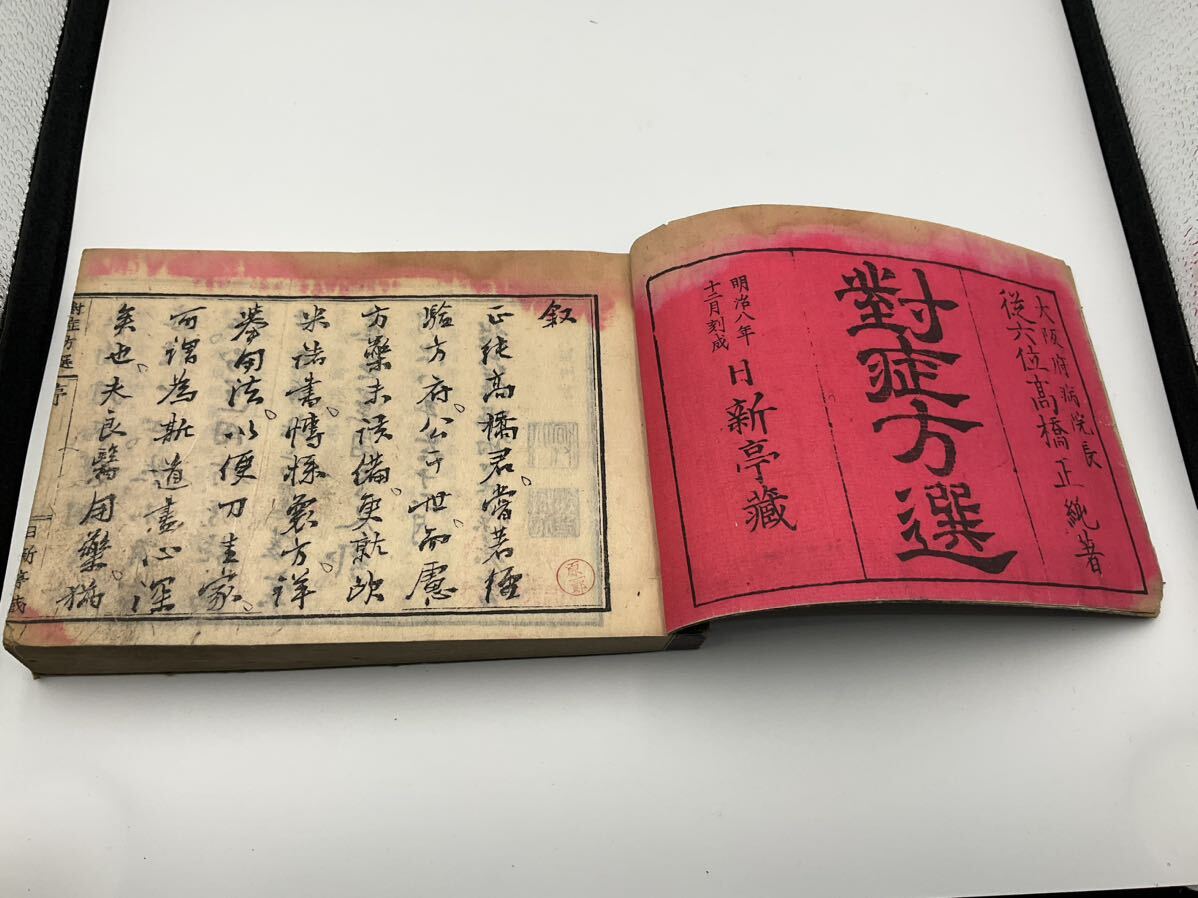 大阪府病院長
從六位高橋正純著
對症方選
明治八年
十二月刻成
日新亭藏
叙
正純高橋君嘗著經
驗方府公于世而慮
方藥未該備更就歐
米諸書博採衆方詳
擧用法以便刀圭家
可謂為斯道盡心深
矣也夫良醫用藥猶
對症方選
日新亭藏